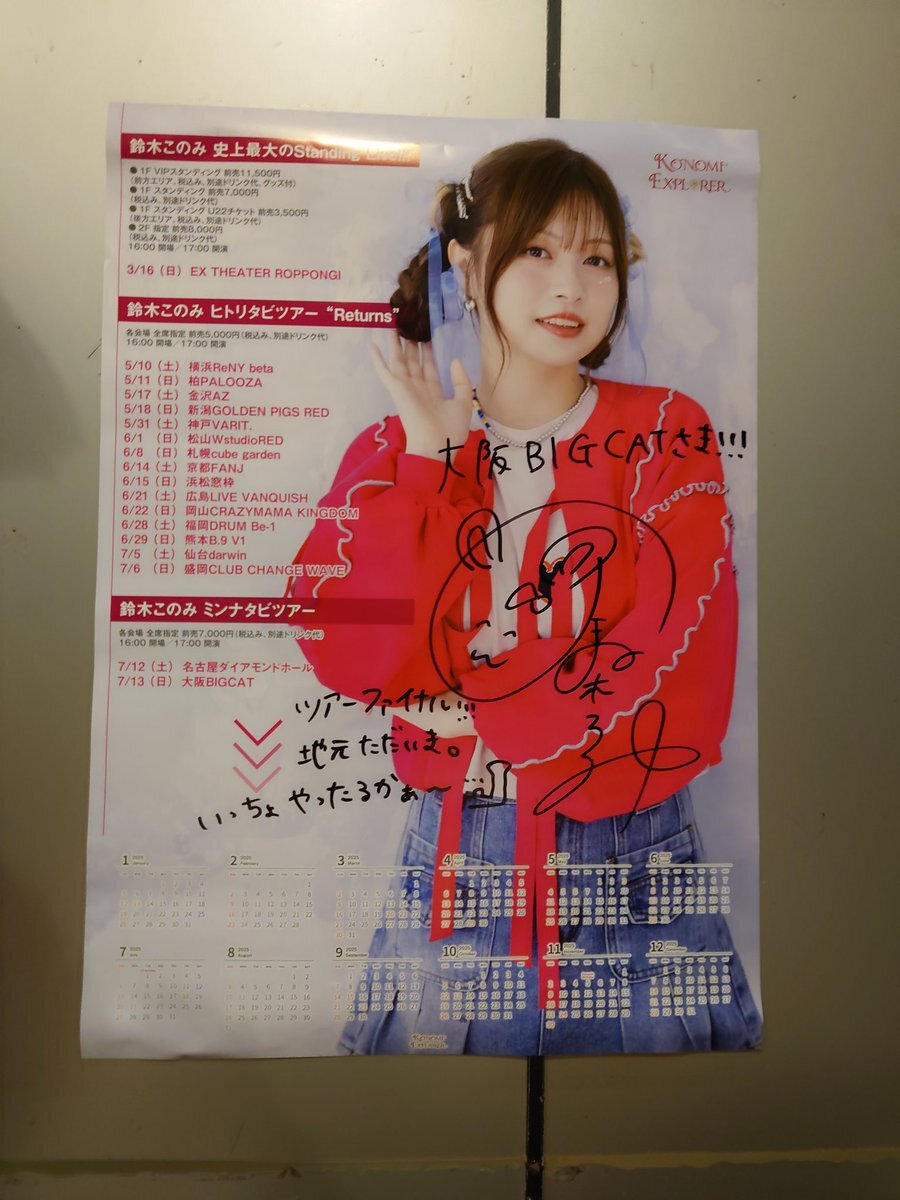 鈴木このみ 史上最大のStanding Live!!!
● 1F VIPスタンディング 前売11,500円
(前方エリア、税込み、別途ドリンク代、グッズ付)
● 1F スタンディング 前売7,000円
(税込み、別途ドリンク代)
● 1F スタンディング U22チケット 前売3,500円
(後方エリア、税込み、別途ドリンク代)
● 2F 指定 前売8,000円
(税込み、別途ドリンク代)
16:00 開場／17:00 開演
3/16（日） EX THEATER ROPPONGI
鈴木このみ ヒトリタビツアー “Returns”
各会場 全席指定 前売5,000円(税込み、別途ドリンク代)
16:00 開場／17:00 開演
5/10（土） 横浜ReNY beta
5/11（日） 柏PALOOZA
5/17（土） 金沢AZ
5/18（日） 新潟GOLDEN PIGS RED
5/31（土） 神戸VARIT.
6/1 （日） 松山WstudioRED
6/8 （日） 札幌cube garden
6/14（土） 京都FANJ
6/15（日） 浜松窓枠
6/21（土） 広島LIVE VANQUISH
6/22（日） 岡山CRAZYMAMA KINGDOM
6/28（土） 福岡DRUM Be-1
6/29（日） 熊本B.9 V1
7/5 （土） 仙台darwin
7/6 （日） 盛岡CLUB CHANGE WAVE
鈴木このみ ミンナタビツアー
各会場 全席指定 前売7,000円(税込み、別途ドリンク代)
16:00 開場／17:00 開演
7/12（土） 名古屋ダイアモンドホール
7/13（日） 大阪BIGCAT
KONOMI
EXPLORER
大阪BIGCATさま!!!
ツアーファイナル!!!
地元ただいま。
いっちょやったるかぁ〜
1 2025 January
2 2025 February
3 2025 March
4 2025 April
5 2025 May
6 2025
7 2025 July
8 2025 August
9 2025 September
10 2025 October
11 2025 November
12 2025 December
KONOMI
EXPLORER